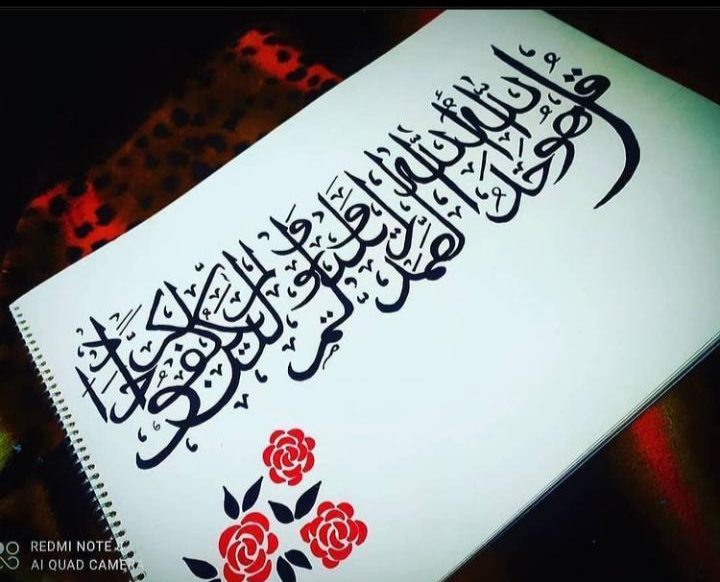 قل هو الله أحد الله الصمد لم يلد ولم يولد ولم يكن له كفوا أحد
REDMI NOTE
AI QUAD CAMERA